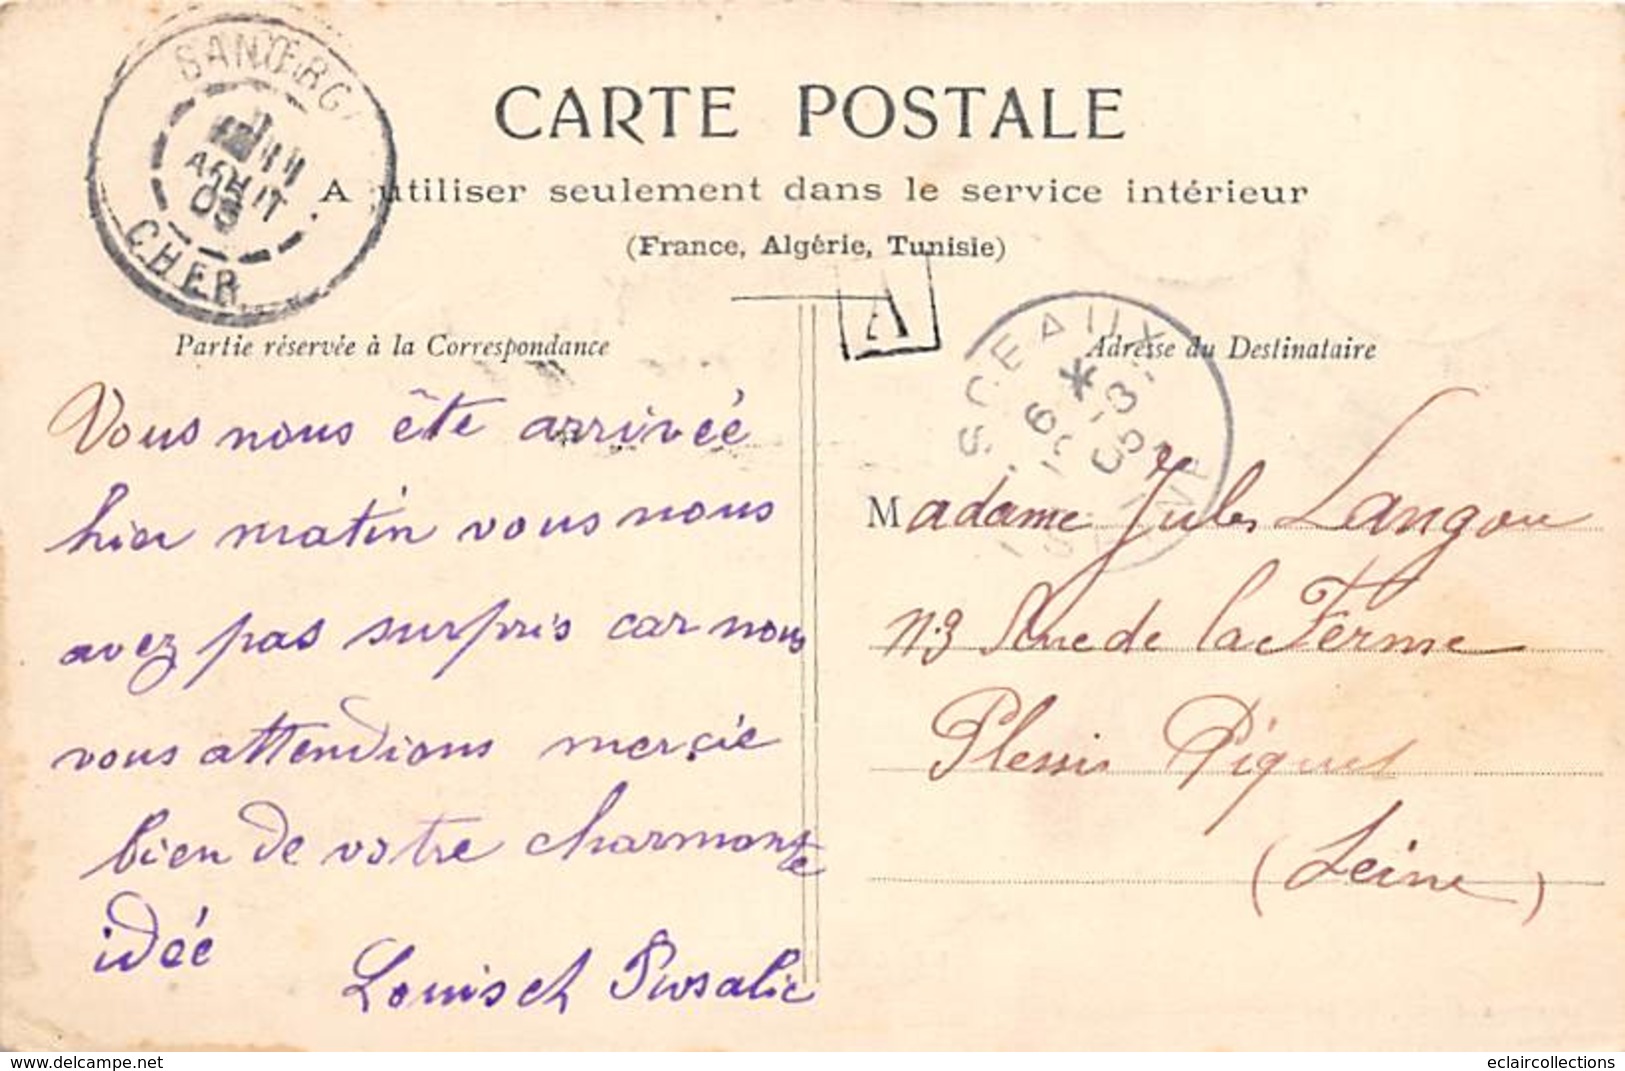 CARTE POSTALE
A utiliser seulement dans le service intérieur
(France, Algérie, Tunisie)
CHER
AOUT
05
A
SCEAUX
6 *
05
Partie réservée à la Correspondance
Vous nous ête arrivée
hier matin vous nous
avez pas surpris car nous
vous attendions mercie
bien de votre charmante
idée
Louis et Rosalie
Adresse du Destinataire
Madame Jules Langou
N.3 Rue de la Ferme
Plessis Piquet
(Seine)
www.delcampe.net
eclaircollections